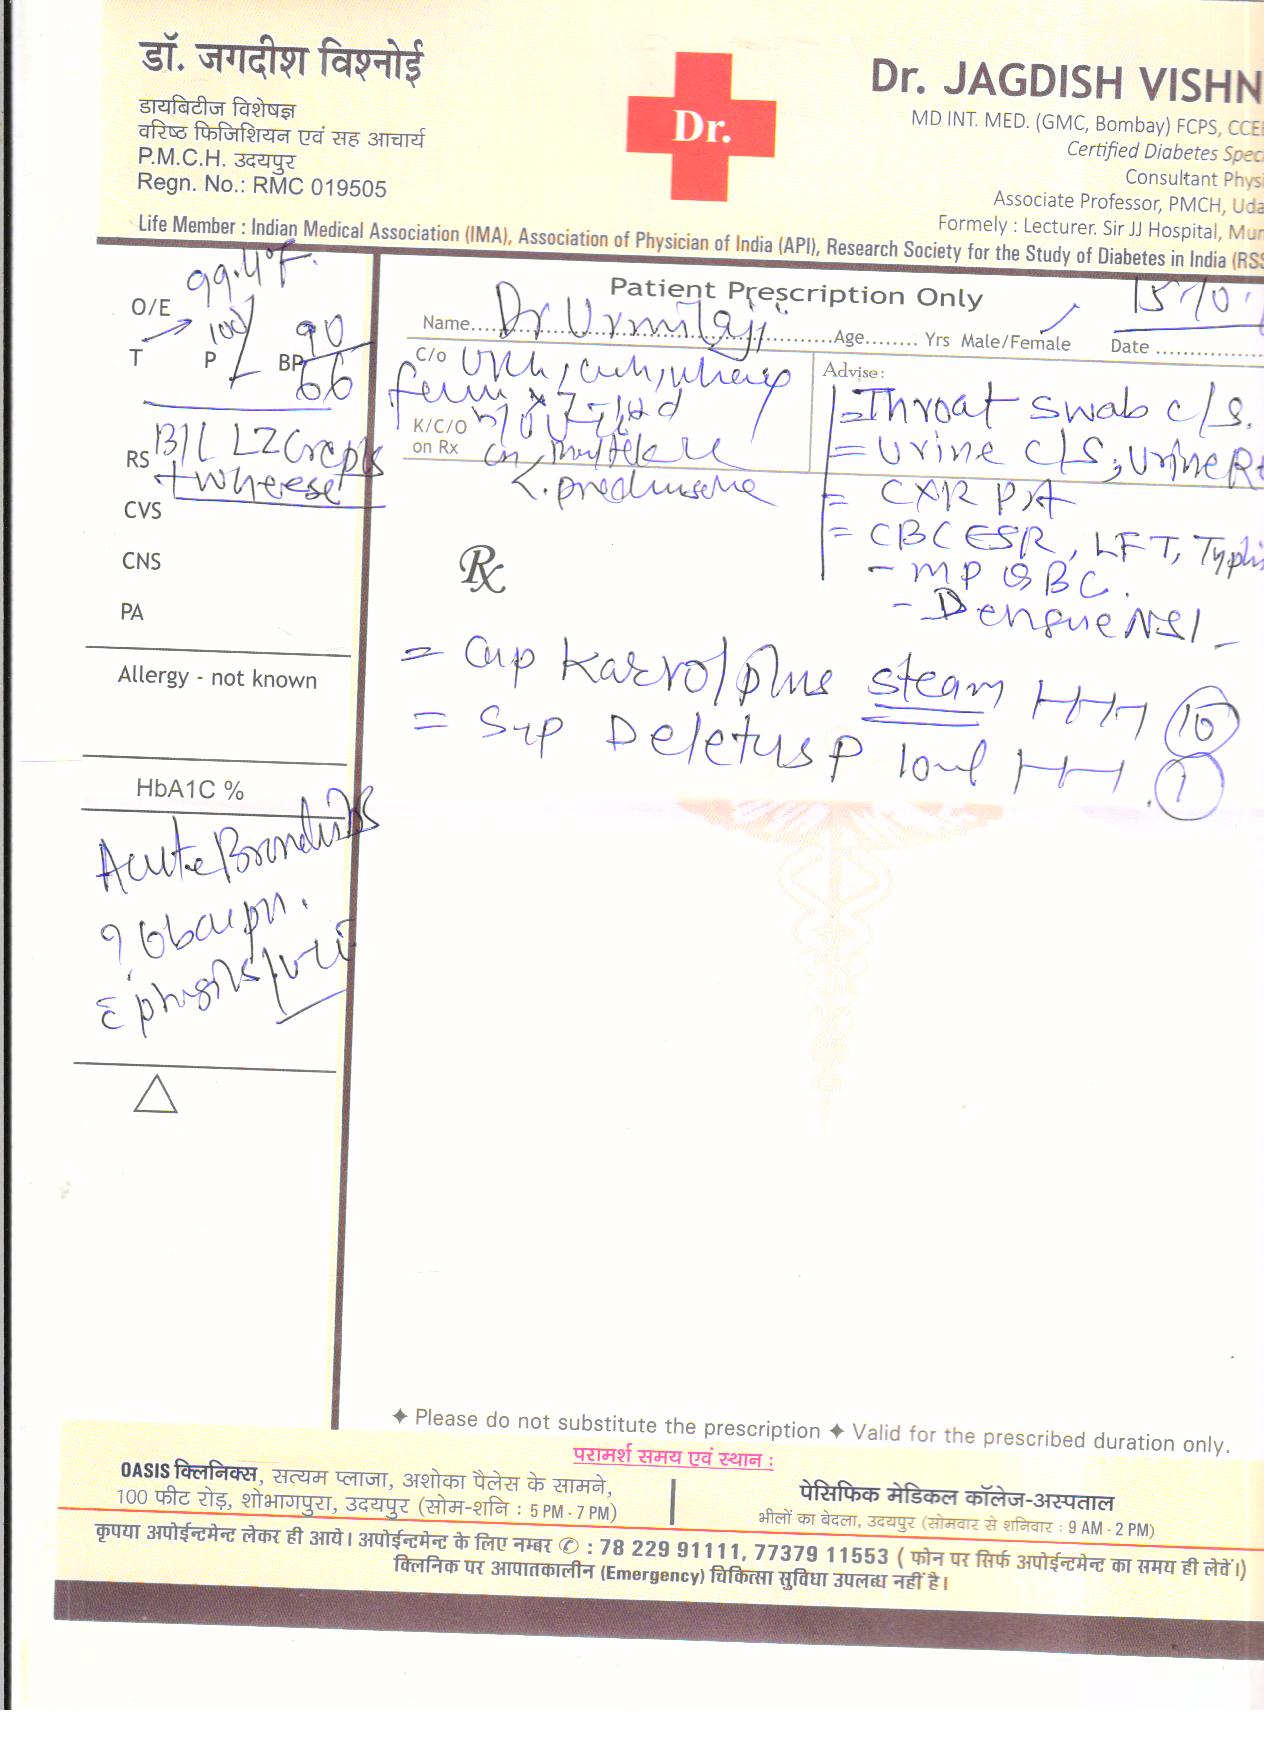 डॉ. जगदीश विश्नोई
डायबिटीज विशेषज्ञ
वरिष्ठ फिजिशियन एवं सह आचार्य
P.M.C.H. उदयपुर
Regn. No.: RMC 019505
Dr.
Dr. JAGDISH VISHN
MD INT. MED. (GMC, Bombay) FCPS, CCE
Certified Diabetes Spec
Consultant Physi
Associate Professor, PMCH, Uda
Formely : Lecturer. Sir JJ Hospital, Mum
Life Member : Indian Medical Association (IMA), Association of Physician of India (API), Research Society for the Study of Diabetes in India (RSS
Patient Prescription Only
Name Dr Urmilaji Age Yrs Male/Female Date 15/10
O/E 99.4°F.
T P 100/ BP 90/66
RS B/L LZ Crepts
+ Wheese
CVS
CNS
PA
Allergy - not known
HbA1C %
Acute Bronchitis
C/o
K/C/O
on Rx
Advise:
= Throat swab c/s.
= Urine c/s, Urine R
= CXR PA
= CBC ESR, LFT, Typhi
- MP QBC.
- Dengue NS1
Rx
= Cap Karvol plus steam 10
= Syp Deletus P 10ml 1
✦ Please do not substitute the prescription ✦ Valid for the prescribed duration only.
परामर्श समय एवं स्थान :
OASIS क्लिनिक्स, सत्यम प्लाजा, अशोका पैलेस के सामने,
100 फीट रोड़, शोभागपुरा, उदयपुर (सोम-शनि : 5 PM - 7 PM)
पेसिफिक मेडिकल कॉलेज-अस्पताल
भीलों का बेदला, उदयपुर (सोमवार से शनिवार : 9 AM - 2 PM)
कृपया अपोईन्टमेन्ट लेकर ही आवे। अपोईन्टमेन्ट के लिए नम्बर ✆ : 78 229 91111, 77379 11553 ( फोन पर सिर्फ अपोईन्टमेन्ट का समय ही लेवें।)
क्लिनिक पर आपातकालीन (Emergency) चिकित्सा सुविधा उपलब्ध नहीं है।